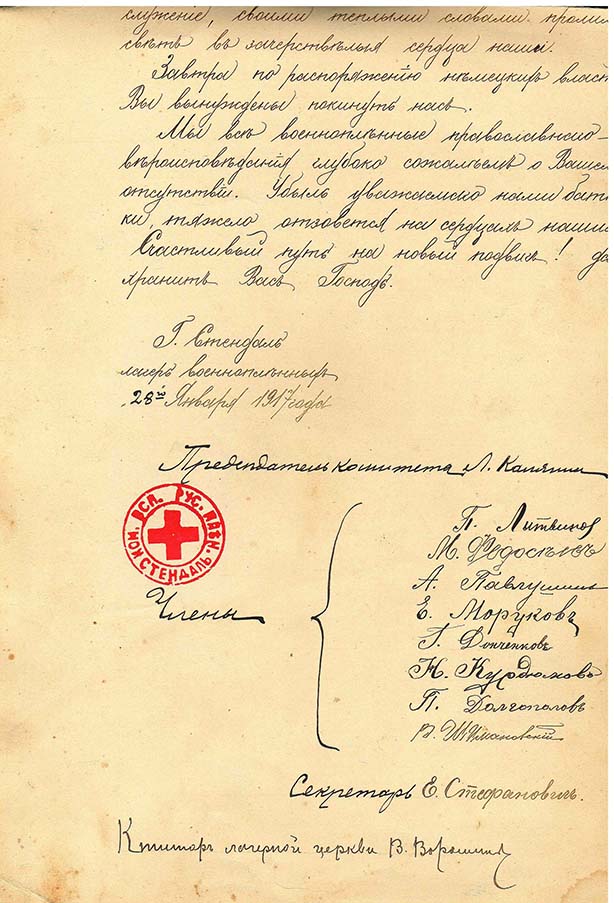 служеніе, своими теплыми словами проли
свѣтъ въ зачерствѣлыя сердца наши.
Завтра по распоряженію нѣмецкихъ власт
Вы вынуждены покинуть насъ.
Мы всѣ военноплѣнные православнаго
вѣроисповѣданія глубоко сожалѣемъ о Вашем
отсутствіи. Убыль уважаемаго нами батю
ки, тяжело отзовется на сердцахъ нашихъ
Счастливый путь на новый подвигъ! да
хранитъ Васъ Господь.
Г. Стендаль
лагерь военноплѣнныхъ
28го Января 1917 года
Предсѣдатель комитета Л. Калянин
ВСП. РУС. ПЛѢН.
КОМ. СТЕНДАЛЬ
Члены
П. Литвинов
М. Ѳедосѣевъ
А. Павлушин
Е. Моруковъ
Г. Донченковъ
Н. Курдюковъ
П. Долгополовъ
В. Шимановскій
Секретарь Е. Стефановичъ.
Ктиторъ лагерной церкви В. Ворошилов